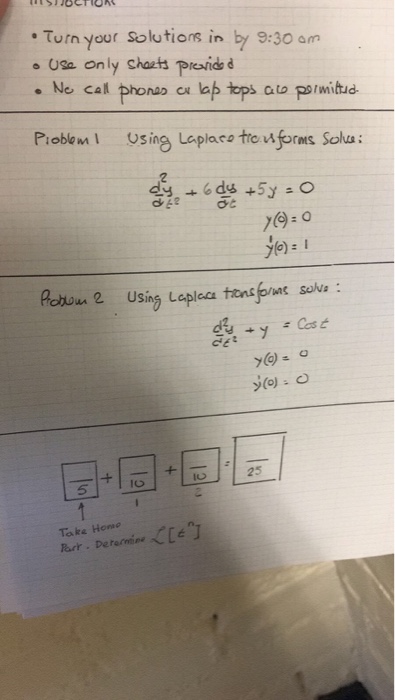 • Turn your solutions in by 9:30 am
• Use only sheets provided
• No cell phones or lap tops are permitted.
Problem 1 Using Laplace transforms Solve:
d²y/dt² + 6 dy/dt + 5y = 0
y(0) = 0
ẏ(0) = 1
Problem 2 Using Laplace transforms solve:
d²y/dt² + y = Cos t
y(0) = 0
ẏ(0) = 0
5 + 10 + 10 = 25
1 2
Take Home
Part - Determine ℒ[tⁿ]